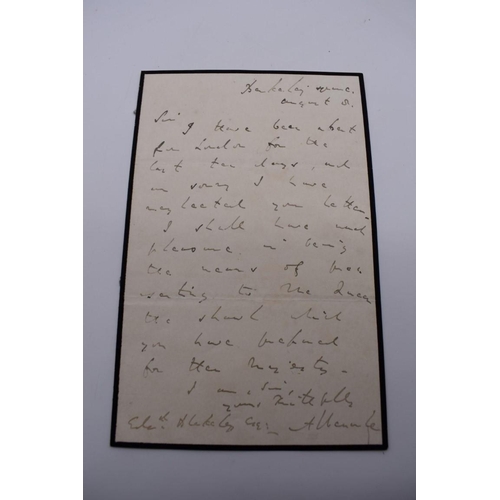 Berkeley Square.
August 8.
Sir, I have been absent
from London for the
last ten days, and
am sorry I have
neglected your letter.
I shall have much
pleasure in being
the means of pre
senting to The Queen
the shawl which
you have prepared
for Her Majesty.
I am, Sir,
yours faithfully
Edwd. Blakeley Esqr.